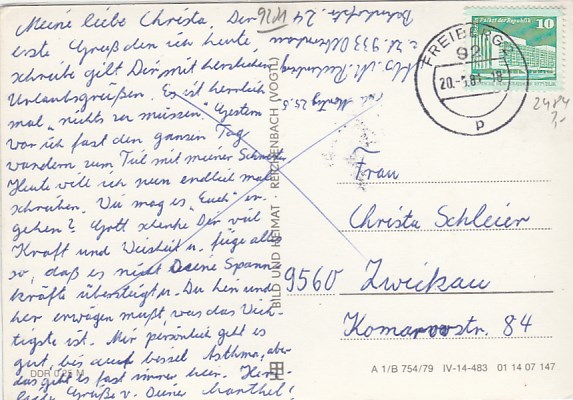 Meine liebe Christa, Der
erste Gruß den ich heute
schreibe gilt Dir mit herzlichen
Urlaubsgrüßen. Es ist herrlich
mal "nichts zu müssen". Gestern
war ich fast den ganzen Tag
wandern zum Teil mit meiner
Heute will ich nun endlich mal
schreiben. Wie mag es "Euch" er-
gehen? Gott schenke Dir viel
Kraft und Weisheit u. füge alles
so, daß es nicht Deine Spann-
kräfte übersteigt. Du hin und
her erwägen mußt, was das Wich-
tigste ist. Mir persönlich geht es
gut, bis auf Asthma, aber
das geht es fast immer hier. Herz-
liche Grüße v. Deiner
DDR 0,25 M
9201
Bahnhofstr. 24
BILD UND HEIMAT · REICHENBACH (VOGTL)
FREIBERG
92
20.-5.8
18
p
Palast der Republik
10
DDR
2484
3,-
Frau
Christa Schleier
9560 Zwickau
Komarowstr. 84
A 1/B 754/79 IV-14-483 01 14 07 147